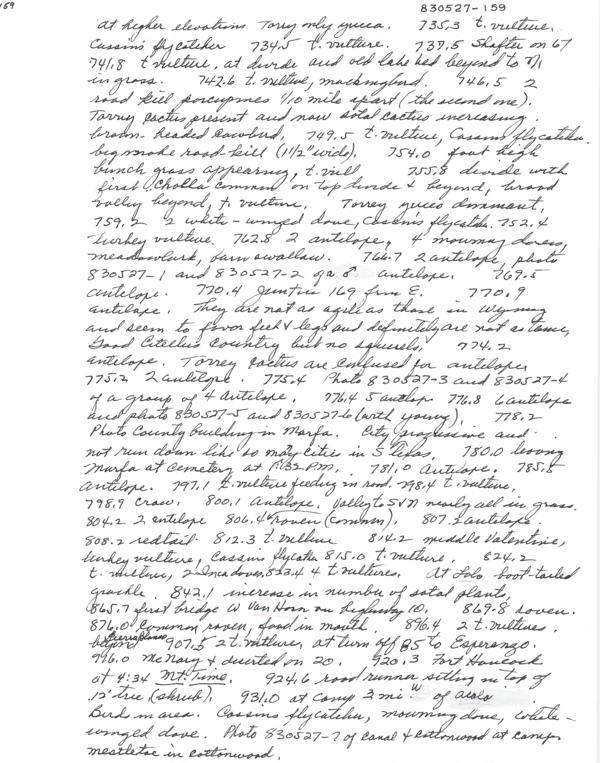 159
830527-159
at higher elevations Torry only yucca. 735.3 t. vulture.
Cassins flycatcher 734.5 t. vulture. 737.5 Shafter on 67
741.8 t vulture, at divide and old lake bed beyond to
in grass. 742.6 t. vulture, mockingbird. 746.5 2
road kill porcupines 1/10 mile apart (the second one).
Torry cactus present and now sotal cactus increasing.
brown-headed cowbird, 749.5 t. vulture, Cassins flycatcher
big snake road-kill (1 1/2" wide). 754.0 foot high
bunch grass appearing, t. vul 755.8 divide with
first Cholla common on top divide & beyond, broad
valley beyond, t. vulture. Torrey yucca dominant,
759.2 2 white-winged dove, Cassin's flycatcher. 752.4
turkey vulture. 762.8 2 antelope, 4 mourning doves,
meadowlark, barn swallow. 766.7 2 antelope, photo
830527-1 and 830527-2 of a antelope. 769.5
antelope. 770.4 Junction 169 from E. 770.9
antelope. They are not as agile as those in Wyoming
and seem to favor feet & legs and definitely are not as tame,
Good Citellus country but no squirrels, 774.2
antelope. Torrey cactus are confused for antelope
775.2 2 antelope. 775.4 Photo 830527-3 and 830527-4
of a group of 4 antelope. 776.4 5 antlop 776.8 6 antelope
and photo 830527-5 and 830527-6 (with young). 778.2
Photo County building in Marfa. City progressive and
not run down like so many cities in S. 780.0 leaving
Marfa at cemetery at 1:32 P.M. 781.0 Antelope. 785.5
antelope. 797.1 t. vulture feeding in road. 798.4 t. vulture,
798.9 crow. 800.1 antelope. Valley to S & N nearly all in grass.
804.2 2 antelope 806.4 raven (common). 807.2 antelope.
808.2 redtail 812.3 t. vulture 814.2 middle Valentine,
turkey vulture, Cassins flycatch 815.0 t. vulture. 824.2
t. vulture, 2 Inca doves, 823.4 4 t. vultures. At Lobo boat-tailed
grackle. 842.1 increase in number of sotal plants,
865.7 first bridge W Van Horn on highway 10. 869.8 raven.
876.0 common raven, food in mouth. 896.4 2 t. vultures.
Sierra Blanca
907.5 2 t. vulture, at turn off 85 to Esperanzo.
916.0 McNary & deserted on 20. 920.3 Fort Hancock
at 4:34 Mt. Time. 924.6 road runner sitting in top of
12' tree (shrub). 931.0 at camp 3 mi. W of
Birds in area. Cassins flycatcher, mourning dove, white-
winged dove. Photo 830527-7 of canal & cottonwood at camp
mestletoe in cottonwood.